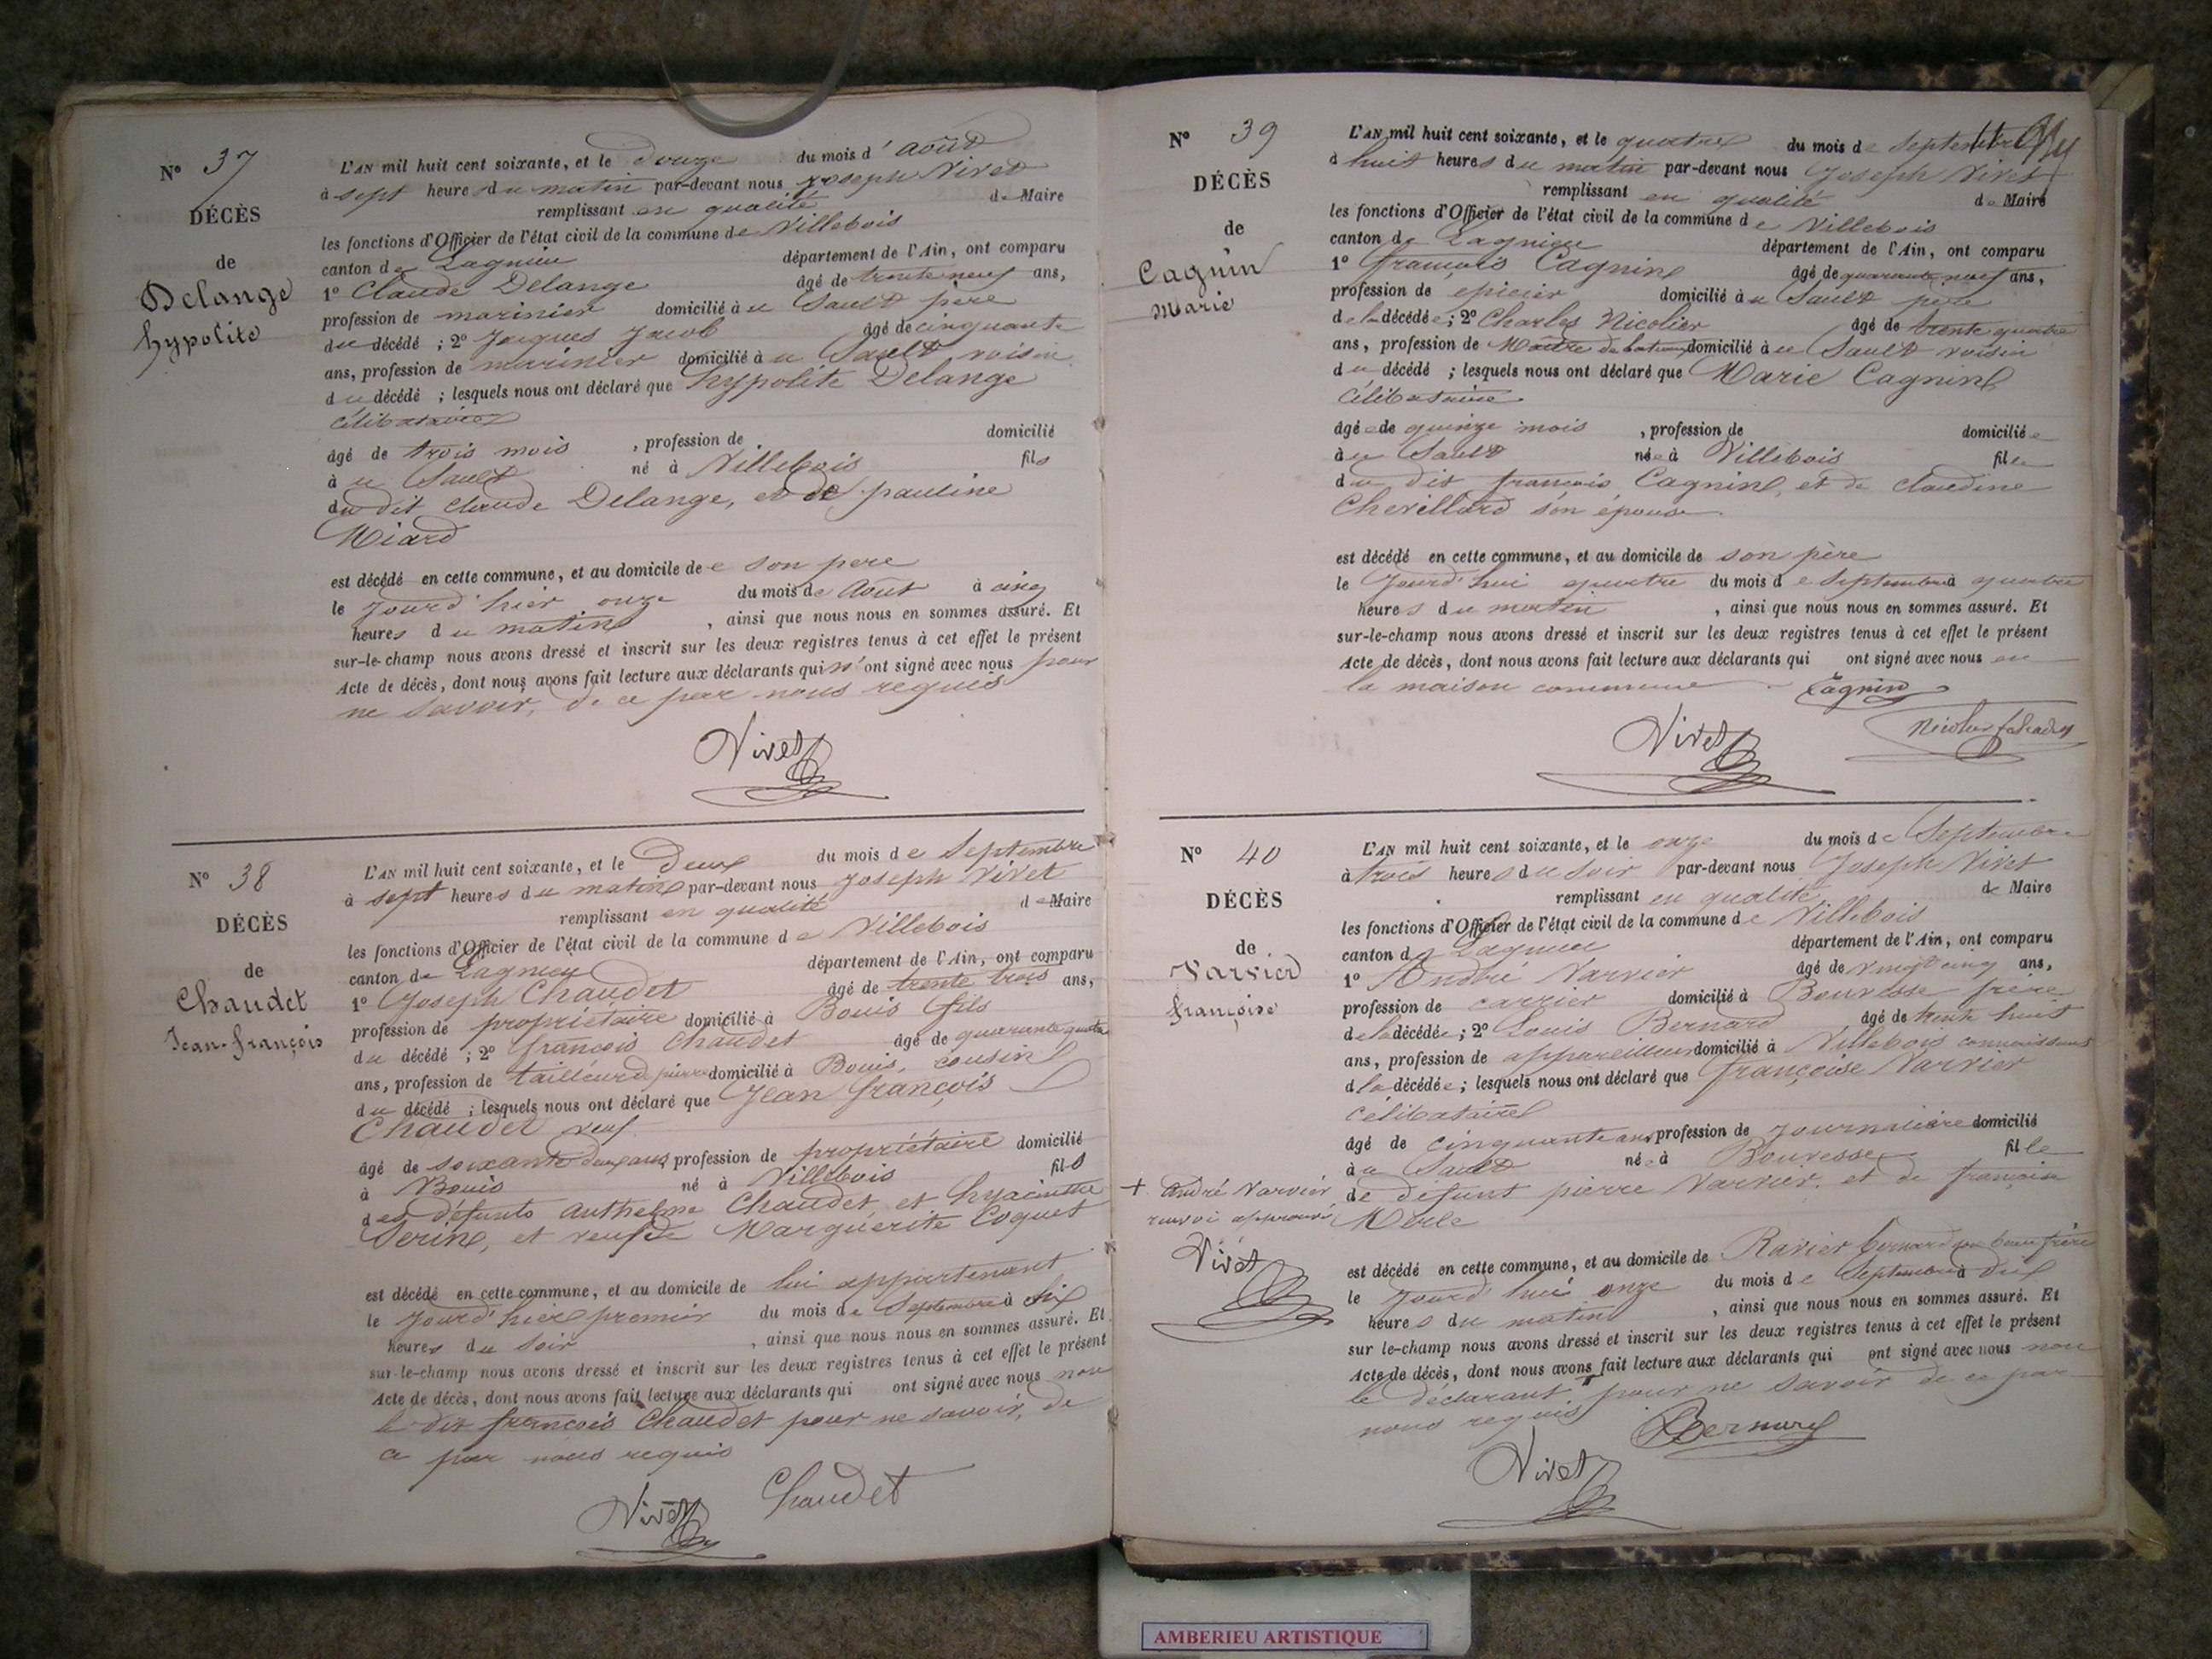 N° 37
DÉCÈS
de
Delange
hypolite
L'AN mil huit cent soixante, et le douze du mois d'août
à sept heures du matin par-devant nous joseph Vivet
remplissant en qualité de Maire
les fonctions d'Officier de l'état civil de la commune de Villebois
canton de Lagnieu département de l'Ain, ont comparu
1° Claude Delange âgé de trente neuf ans,
profession de marinier domicilié à u Sault père
du décédé ; 2° Jacques Jacob âgé de cinquante
ans, profession de marinier domicilié à u Sault voisin
du décédé ; lesquels nous ont déclaré que hypolite Delange
célibataire
âgé de trois mois , profession de domicilié
à u Sault né à Villebois fils
du dit Claude Delange, et de pauline
Miard
est décédé en cette commune, et au domicile de son pere
le jourd'hier onze du mois de Août à cinq
heures du matin , ainsi que nous nous en sommes assuré. Et
sur-le-champ nous avons dressé et inscrit sur les deux registres tenus à cet effet le présent
Acte de décès, dont nous avons fait lecture aux déclarants qui n'ont signé avec nous pour
ne savoir, de ce par nous requis
Vivet
N° 38
DÉCÈS
de
Chaudet
Jean-françois
L'AN mil huit cent soixante, et le deux du mois de Septembre
à sept heures du matin par-devant nous Joseph Vivet
remplissant en qualité de Maire
les fonctions d'Officier de l'état civil de la commune de Villebois
canton de Lagnieu département de l'Ain, ont comparu
1° Joseph Chaudet âgé de trente trois ans,
profession de propriétaire domicilié à Bouis fils
du décédé ; 2° françois Chaudet âgé de quarante quatre
ans, profession de tailleur de pierre domicilié à Bouis, cousin
du décédé ; lesquels nous ont déclaré que Jean françois
Chaudet veuf
âgé de soixante deux ans profession de propriétaire domicilié
à Bouis né à Villebois fils
des défunts Anthelme Chaudet, et hyacinthe
Serine, et veuf de Marguerite Coquet
est décédé en cette commune, et au domicile de lui appartenant
le jourd'hier premier du mois de Septembre à six
heures du soir , ainsi que nous nous en sommes assuré. Et
sur-le-champ nous avons dressé et inscrit sur les deux registres tenus à cet effet le présent
Acte de décès, dont nous avons fait lecture aux déclarants qui ont signé avec nous non
le dit françois Chaudet pour ne savoir, de
ce par nous requis
Vivet Chaudet
N° 39
DÉCÈS
de
Cagnin
Marie
L'AN mil huit cent soixante, et le quatre du mois de Septembre
à huit heures du matin par-devant nous Joseph Vivet
remplissant en qualité de Maire
les fonctions d'Officier de l'état civil de la commune de Villebois
canton de Lagnieu département de l'Ain, ont comparu
1° françois Cagnin âgé de quarante neuf ans,
profession de epicier domicilié à u Sault père
de la décédée ; 2° Charles Nicolier âgé de trente quatre
ans, profession de Maitre de bateau domicilié à u Sault voisin
du décédé ; lesquels nous ont déclaré que Marie Cagnin
célibataire
âgé de quinze mois , profession de domiciliée
à u Sault née à Villebois fille
du dit françois Cagnin, et de claudine
Chevillard son épouse
est décédé en cette commune, et au domicile de son père
le Jourd'hui quatre du mois de Septembre à quatre
heures du matin , ainsi que nous nous en sommes assuré. Et
sur-le-champ nous avons dressé et inscrit sur les deux registres tenus à cet effet le présent
Acte de décès, dont nous avons fait lecture aux déclarants qui ont signé avec nous en
la maison commune Cagnin
Vivet
N° 40
DÉCÈS
de
Varvier
françoise
L'AN mil huit cent soixante, et le onze du mois de Septembre
à trois heures du soir par-devant nous Joseph Vivet
remplissant en qualité de Maire
les fonctions d'Officier de l'état civil de la commune de Villebois
canton de Lagnieu département de l'Ain, ont comparu
1° André Varvier âgé de vingt cinq ans,
profession de carrier domicilié à Bouvesse frere
de la décédée ; 2° Louis Bernard âgé de trente huit
ans, profession de appareilleur domicilié à Villebois connaissant
d la décédée ; lesquels nous ont déclaré que françoise Varvier
célibataire
âgé de cinquante ans profession de journaliere domicilié
à u Sault née à Bouvesse fille
de défunt pierre Varvier, et de françoise
Merle
+ André Varvier
renvoi approuvé
Vivet
est décédé en cette commune, et au domicile de Ravier bernard son beau frère
le jourd'hui onze du mois de Septembre à dix
heures du matin , ainsi que nous nous en sommes assuré. Et
sur le-champ nous avons dressé et inscrit sur les deux registres tenus à cet effet le présent
Acte de décès, dont nous avons fait lecture aux déclarants qui ont signé avec nous non
le déclarant + pour ne savoir de ce par
nous requis Bernard
Vivet
AMBERIEU ARTISTIQUE